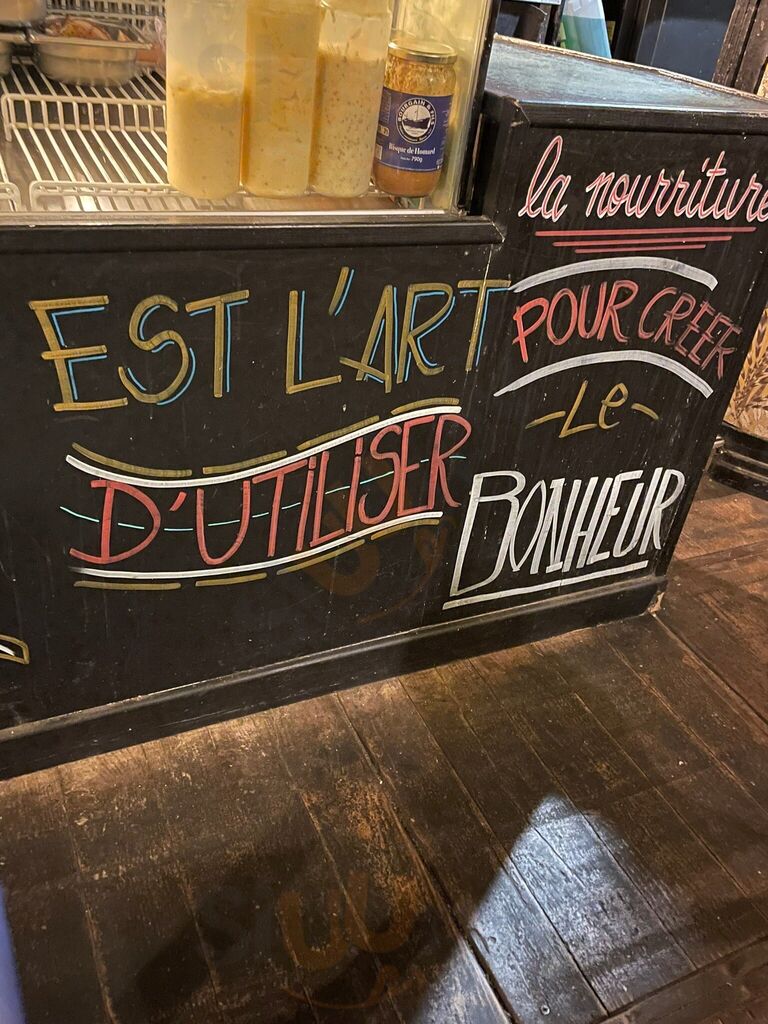 EST L'ART
D'UTILISER
la nourriture
POUR CRÉER
Le
BONHEUR
BOURGAIN & FILS
Bisque de Homard
790g